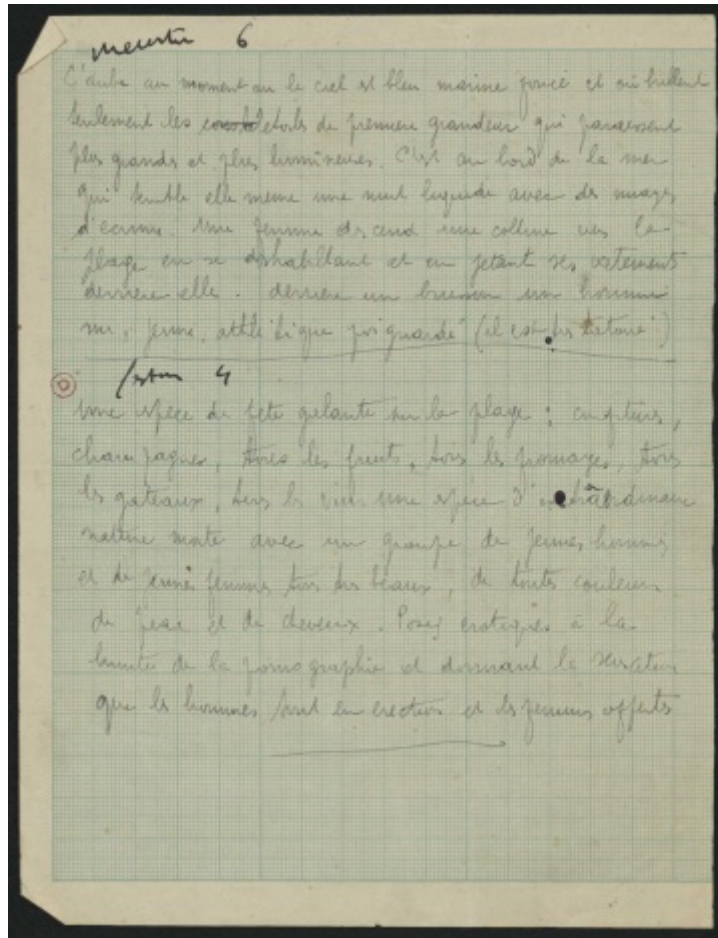 meurtre 6
L'aube au moment ou le ciel est bleu marine foncé et où brillent
seulement les etoiles de premiere grandeur qui paraissent
plus grands et plus lumineuses. C'est au bord de la mer
qui semble elle meme une nuit liquide avec des nuages
d'ecume. Une femme descend une colline vers la
plage en se dshabillant et en jetant ses vetements
derriere elle. derriere un buisson un homme
nu, jeune, athlétique poignardé (il est
festin 4
Une espèce de fete galante sur la plage :
champagnes, tous les fruits, tous les fromages, tous
les gateaux, tous les vins. une espèce d'
nature morte avec un groupe de jeunes hommes
et de jeunes femmes tous tres beaux, de toutes couleurs
de peau et de cheveux. Poses erotiques à la
limite de la pornographie et donnant la sensation
que les hommes sont en erection et les femmes offertes